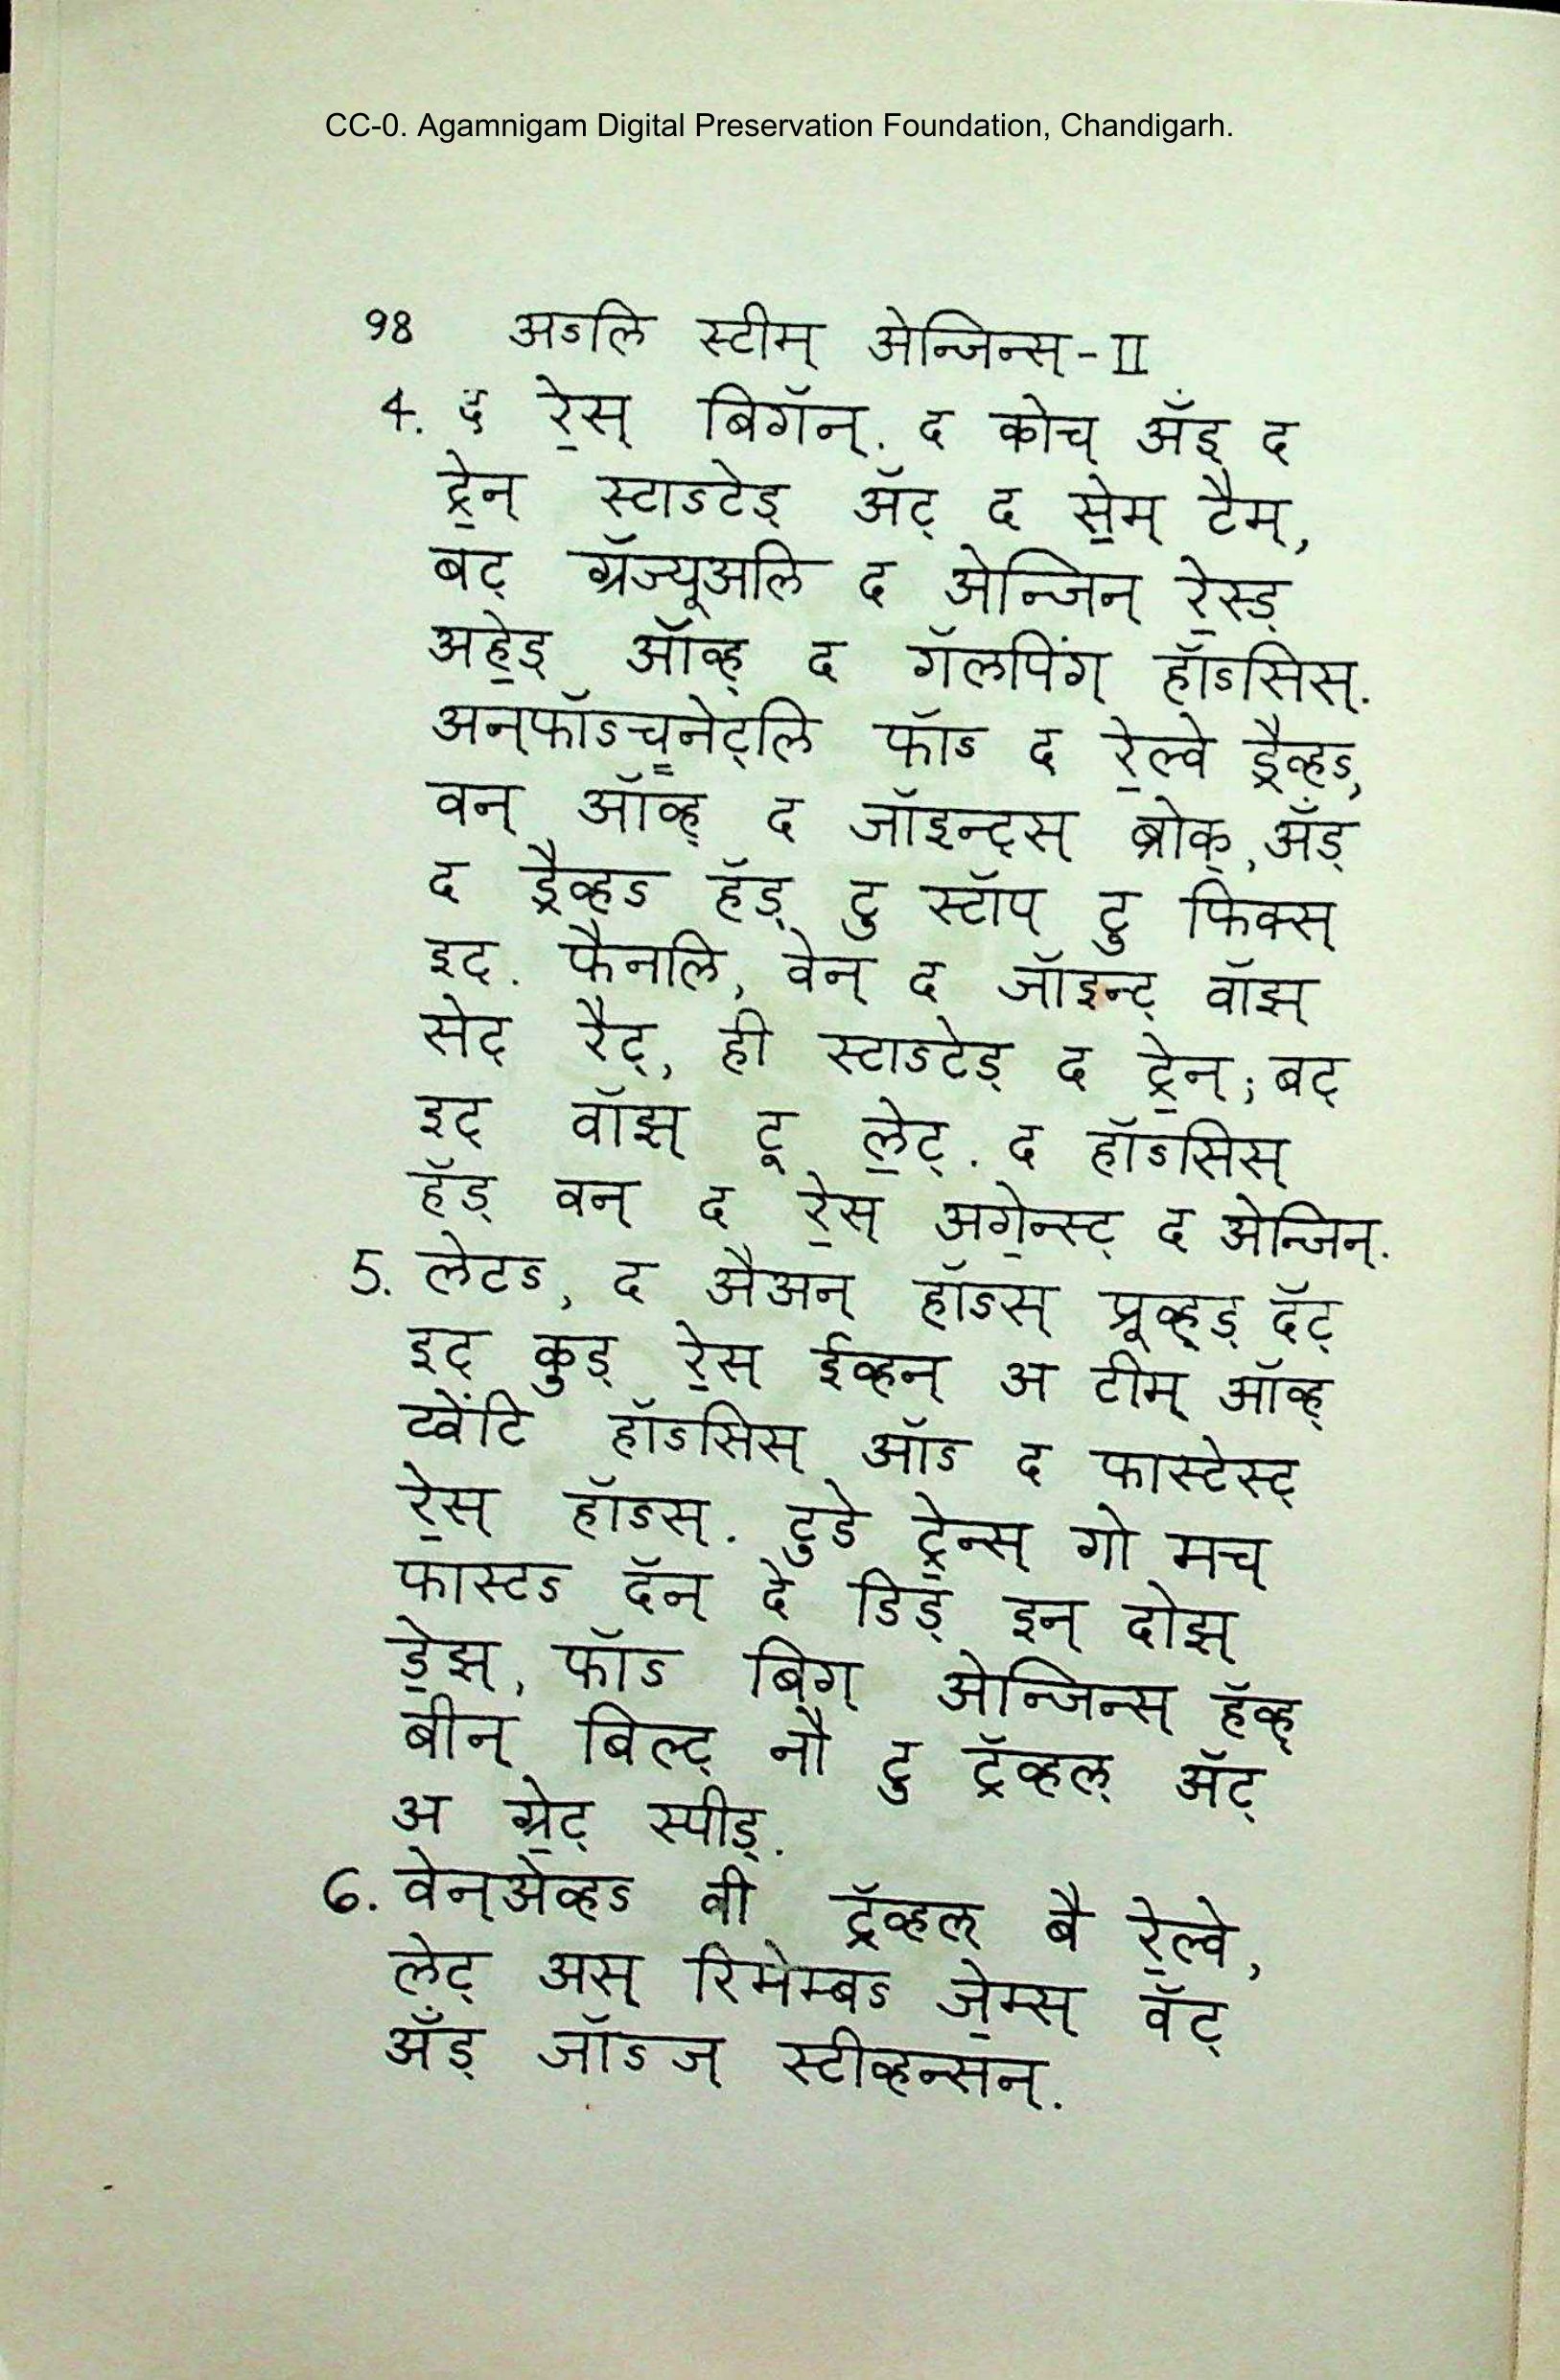 CC-0. Agamnigam Digital Preservation Foundation, Chandigarh.
98 अऽलि स्टीम् अेन्जिन्स्-II
4. द रे॒स् बिगॅन्. द कोच् अँड् द
ट्रे॒न् स्टाऽटेड् अॅट् द से॒म् टैम्,
बट् ग्रॅज्यूअलि द अेन्जिन् रे॒स्ड्
अहे॒ड् ऑव्ह् द गॅलपिंग् हॉऽसिस्.
अन्फॉऽच्॒नेट्लि फॉऽ द रे॒ल्वे ड्रैव्हऽ,
वन् ऑव्ह् द जॉइन्ट्स् ब्रोक्, अँड्
द ड्रैव्हऽ हॅड् टु स्टॉप् टु फिक्स्
इट्. फैनलि, वेन् द जॉइन्ट् वॉझ्
सेट् रैट्, ही स्टाऽटेड् द ट्रे॒न्; बट्
इट् वॉझ् टू ले॒ट्. द हॉऽसिस्
हॅड् वन् द रे॒स् अगे॒न्स्ट् द अेन्जिन्.
5. लेटऽ, द अैअन् हॉऽस् प्रूव्ह्ड् दॅट्
इट् कुड् रे॒स् ईव्हन् अ टीम् ऑव्ह्
ट्वेंटि हॉऽसिस् ऑऽ द फास्टेस्ट्
रे॒स् हॉऽस्. टुडे ट्रे॒न्स् गो मच्
फास्टऽ दॅन् दे डिड् इन् दोझ्
डे॒झ्, फॉऽ बिग् अेन्जिन्स् हॅव्ह्
बीन् बिल्ट् नौ टु ट्रॅव्हल् अॅट्
अ ग्रे॒ट् स्पीड्.
6. वेन्अेव्हऽ वी ट्रॅव्हल् बै रे॒ल्वे,
लेट् अस् रिमेम्बऽ जे॒म्स् वॅट्
अँड् जॉऽज् स्टीव्हन्सन्.